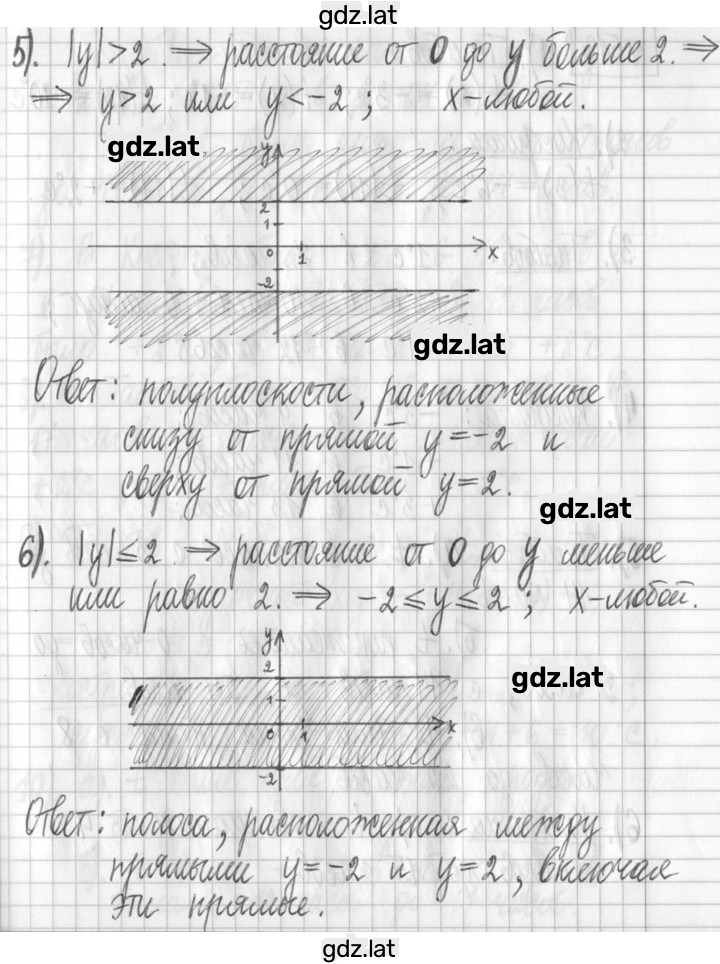 gdz.lat
5). |y|>2. ⇒ расстояние от 0 до y больше 2. ⇒
⇒ y>2 или y<-2; x-любой.
gdz.lat
y
2
1
0 1 x
-2
gdz.lat
Ответ: полуплоскости, расположенные
снизу от прямой y=-2 и
сверху от прямой y=2.
gdz.lat
6). |y|≤2. ⇒ расстояние от 0 до y меньше
или равно 2. ⇒ -2≤y≤2; x-любой.
y
2
gdz.lat
1
0 1 x
-2
Ответ: полоса, расположенная между
прямыми y=-2 и y=2, включая
эти прямые.
gdz.lat